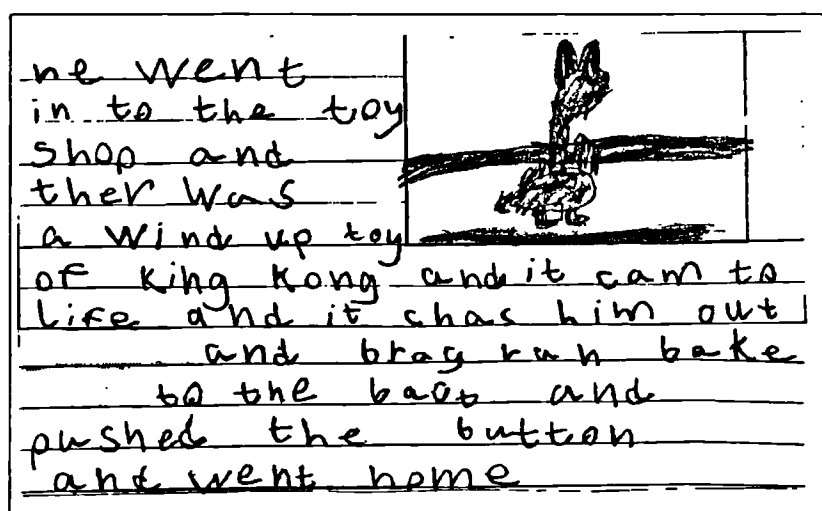 he went
in to the toy
shop and
ther was
a wind up toy
of King Kong and it cam to
life and it chas him out
and brag ran bake
to the baot and
pushed the button
and went home